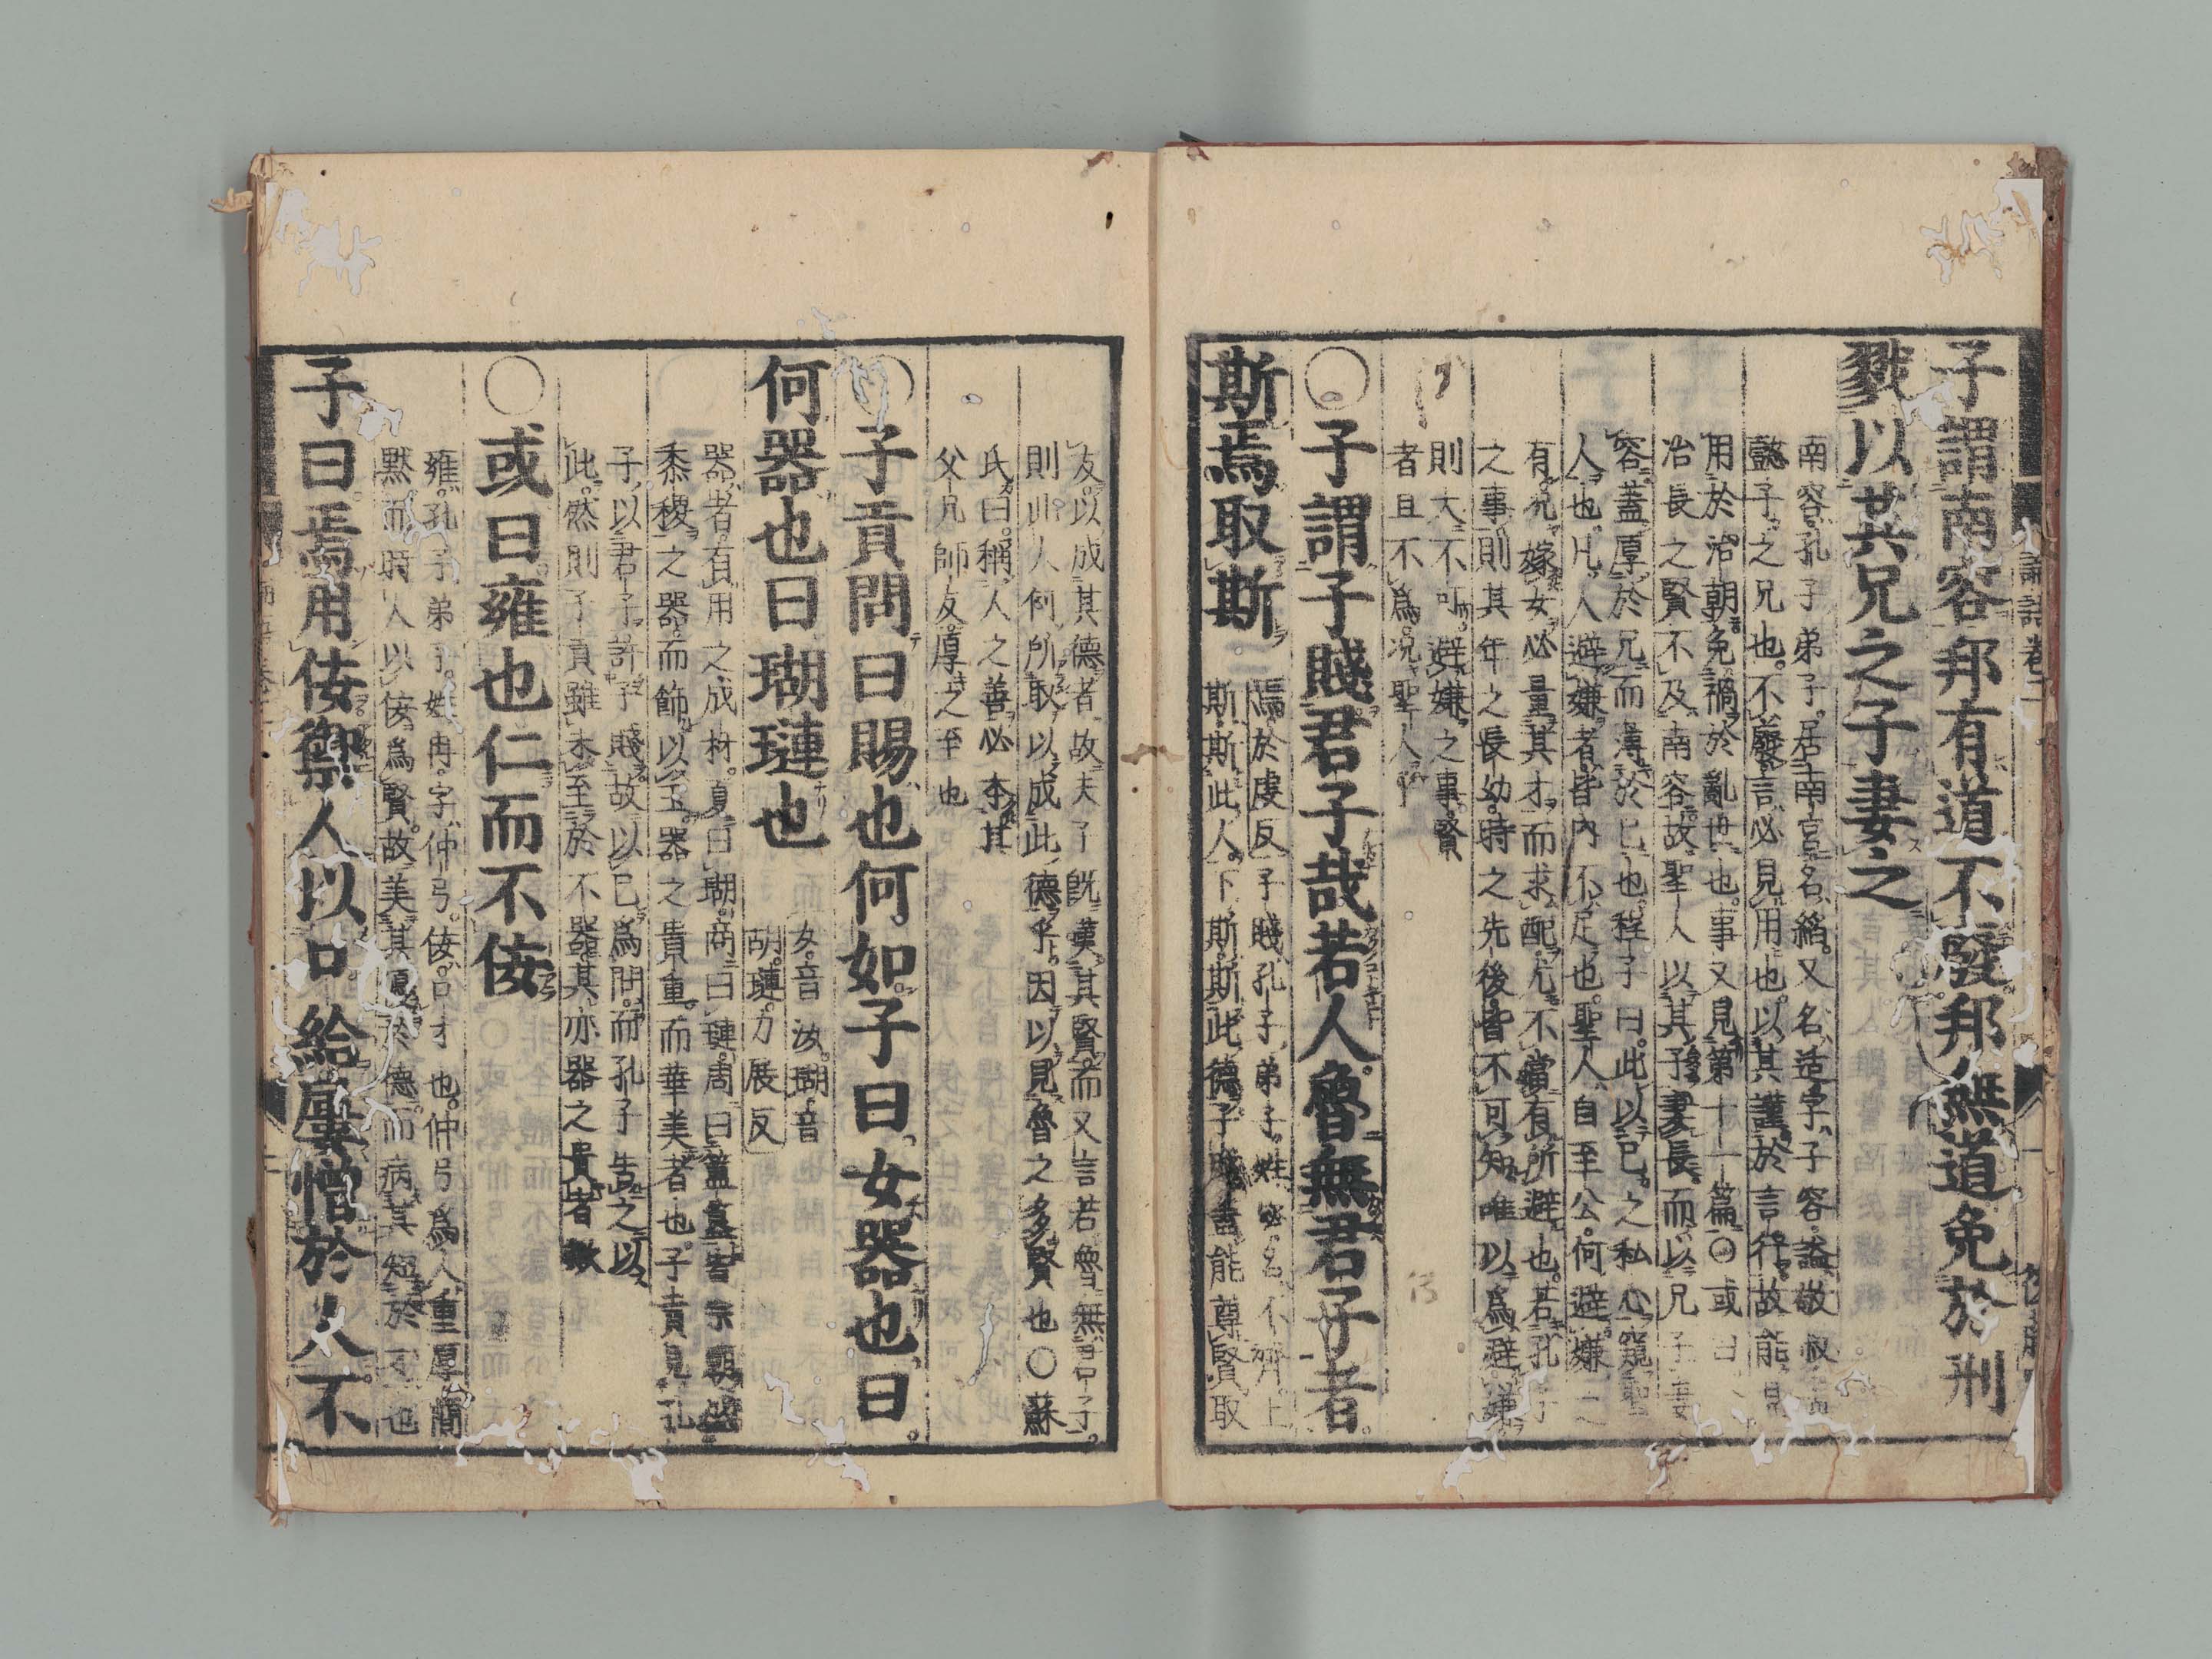 子謂南容邦有道不廢邦無道免於刑
戮以其兄之子妻之
南容孔子弟子居南宮名縚又名适字子容謚敬叔
懿子之兄也不廢言必見用也以其謹於言行故能見
用於治朝免禍於亂世也事又見第十一篇○或曰
冶長之賢不及南容故聖人以其子妻長而以兄子妻
容蓋厚於兄而薄於己也程子曰此以己之私心窺聖
人也凡人避嫌者皆內不足也聖人自至公何避嫌之
有况嫁女必量其才而求配尤不當有所避也若孔子
之事則其年之長幼時之先後皆不可知唯以爲避嫌
則大不可避嫌之事賢
者且不爲况聖人乎
○子謂子賤君子哉若人魯無君子者
斯焉取斯
焉於虔反子賤孔子弟子姓宓名不齊上
斯斯此人下斯斯此德子賤蓋能尊賢取
友以成其德者故夫子旣嘆其賢而又言若魯無君子
則此人何所取以成此德乎因以見魯之多賢也○蘇
氏曰稱人之善必本其
父兄師友厚之至也
○子貢問曰賜也何如子曰女器也曰
何器也曰瑚璉也
女音汝瑚音
胡璉力展反
器者有用之成材夏曰瑚商曰璉周曰簠簋皆宗廟盛
黍稷之器而飾以玉器之貴重而華美者也子貢見孔
子以君子許子賤故以己爲問而孔子告之以
此然則子貢雖未至於不器其亦器之貴者歟
○或曰雍也仁而不佞
雍孔子弟子姓冉字仲弓佞口才也仲弓爲人重厚簡
黙而時人以佞爲賢故美其優於德而病其短於才也
子曰焉用佞禦人以口給屢憎於人不